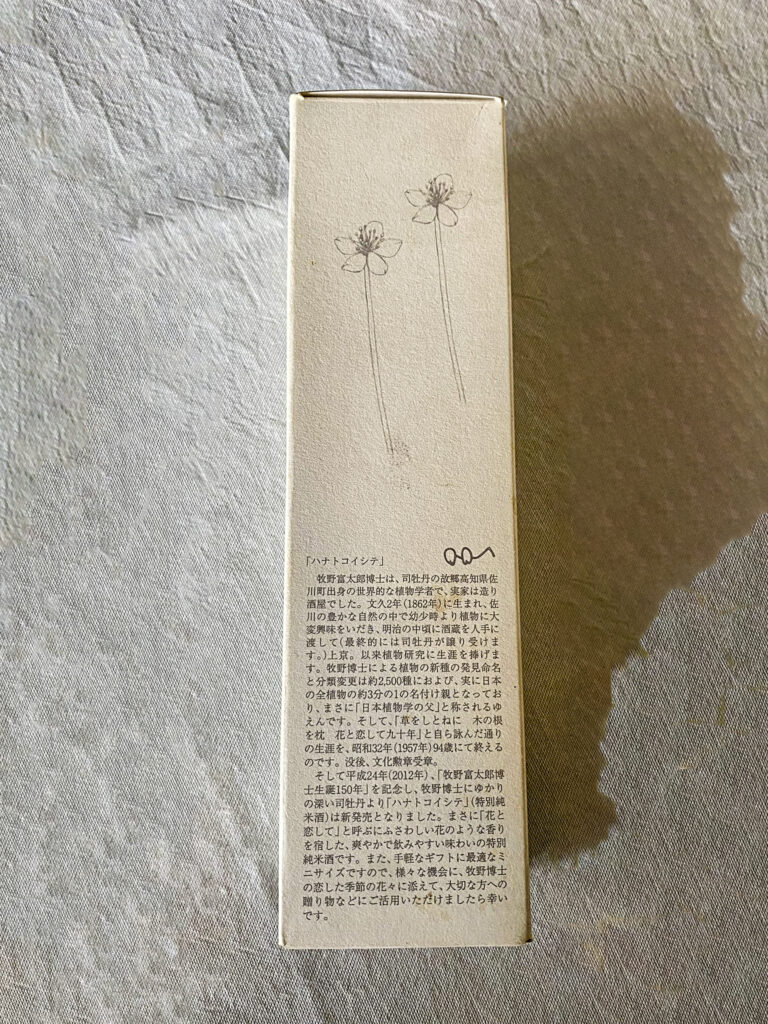 「ハナトコイシテ」
　牧野富太郎博士は、司牡丹の故郷高知県佐
川町出身の世界的な植物学者で、実家は造り
酒屋でした。文久2年(1862年)に生まれ、佐
川の豊かな自然の中で幼少時より植物に大
変興味をいだき、明治の中頃に酒蔵を人手に
渡して(最終的には司牡丹が譲り受けま
す。)上京。以来植物研究に生涯を捧げま
す。牧野博士による植物の新種の発見命名
と分類変更は約2,500種におよび、実に日本
の全植物の約3分の1の名付け親となってお
り、まさに「日本植物学の父」と称されるゆ
えんです。そして、「草をしとねに　木の根
を枕　花と恋して九十年」と自ら詠んだ通り
の生涯を、昭和32年(1957年)94歳にて終える
のです。没後、文化勲章受章。
　そして平成24年(2012年)、「牧野富太郎博
士生誕150年」を記念し、牧野博士にゆかり
の深い司牡丹より「ハナトコイシテ」(特別純
米酒)は新発売となりました。まさに「花と
恋して」と呼ぶにふさわしい花のような香り
を宿した、爽やかで飲みやすい味わいの特別
純米酒です。また、手軽なギフトに最適なミ
ニサイズですので、様々な機会に、牧野博士
の恋した季節の花々に添えて、大切な方への
贈り物などにご活用いただけましたら幸い
です。